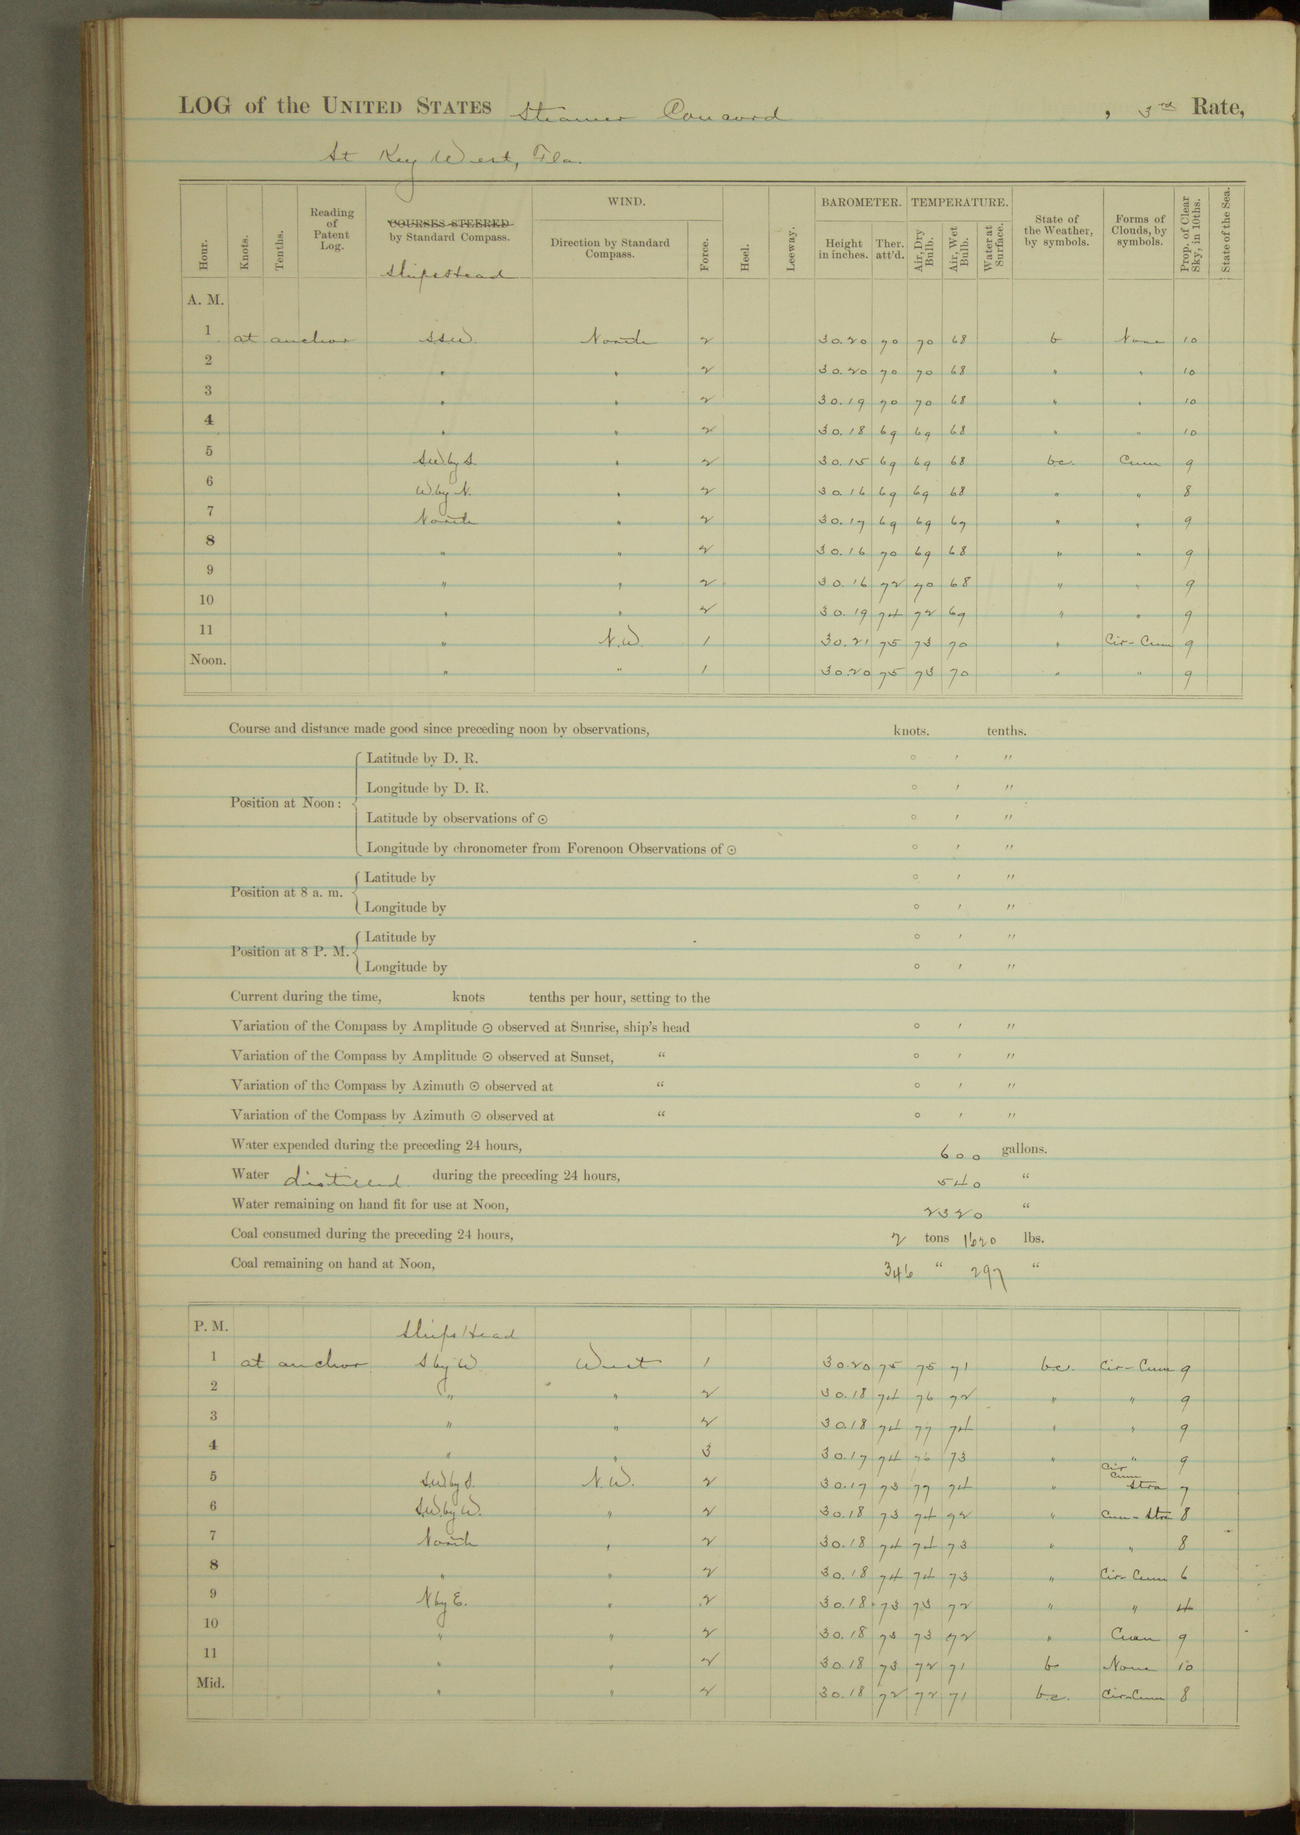 LOG of the UNITED STATES Steamer Concord , 3rd Rate,
At Key West, Fla.
Hour. Knots. Tenths. Reading of Patent Log. COURSES STEERED by Standard Compass. Ships Head WIND. Direction by Standard Compass. Force. Heel. Leeway. BAROMETER. Height in inches. Ther. att'd. TEMPERATURE. Air, Dry Bulb. Air, Wet Bulb. Water at Surface. State of the Weather, by symbols. Forms of Clouds, by symbols. Prop. of Clear Sky, in 10ths. State of the Sea.
A. M.
1 at anchor SSW. North 2 30.20 70 70 68 b None 10
2 " " 2 30.20 70 70 68 " " 10
3 " " 2 30.19 70 70 68 " " 10
4 " " 2 30.18 69 69 68 " " 10
5 SW by S. " 2 30.15 69 69 68 bc. Cum 9
6 W by N. " 2 30.16 69 69 68 " " 8
7 North " 2 30.17 69 69 67 " " 9
8 " " 2 30.16 70 69 68 " " 9
9 " " 2 30.16 72 70 68 " " 9
10 " " 2 30.19 74 72 69 " " 9
11 " N.W. 1 30.21 75 73 70 " Cir-Cum 9
Noon. " " 1 30.20 75 73 70 " " 9
Course and distance made good since preceding noon by observations, knots. tenths.
Position at Noon: Latitude by D. R. ° ′ ″
Longitude by D. R. ° ′ ″
Latitude by observations of ⊙ ° ′ ″
Longitude by chronometer from Forenoon Observations of ⊙ ° ′ ″
Position at 8 a. m. Latitude by ° ′ ″
Longitude by ° ′ ″
Position at 8 P. M. Latitude by ° ′ ″
Longitude by ° ′ ″
Current during the time, knots tenths per hour, setting to the
Variation of the Compass by Amplitude ⊙ observed at Sunrise, ship's head ° ′ ″
Variation of the Compass by Amplitude ⊙ observed at Sunset, " ° ′ ″
Variation of the Compass by Azimuth ⊙ observed at " ° ′ ″
Variation of the Compass by Azimuth ⊙ observed at " ° ′ ″
Water expended during the preceding 24 hours, 600 gallons.
Water distilled during the preceding 24 hours, 540 "
Water remaining on hand fit for use at Noon, 2320 "
Coal consumed during the preceding 24 hours, 2 tons 1620 lbs.
Coal remaining on hand at Noon, 346 " 297 "
P. M. Ships Head
1 at anchor S by W. West 1 30.20 75 75 71 bc. Cir-Cum 9
2 " " 2 30.18 74 76 72 " " 9
3 " " 2 30.18 74 77 74 " " 9
4 " " 3 30.17 74 76 73 " " 9
5 SW by S. N.W. 2 30.17 73 77 74 " Cir Cum Stra 7
6 S.W. by W. " 2 30.18 73 74 72 " Cum-Stra 8
7 North " 2 30.18 74 74 73 " " 8
8 " " 2 30.18 74 74 73 " Cir-Cum 6
9 N by E. " 2 30.18 73 73 72 " " 4
10 " " 2 30.18 73 73 72 " Cum 9
11 " " 2 30.18 73 72 71 b None 10
Mid. " " 2 30.18 72 72 71 b.c. Cir-Cum 8